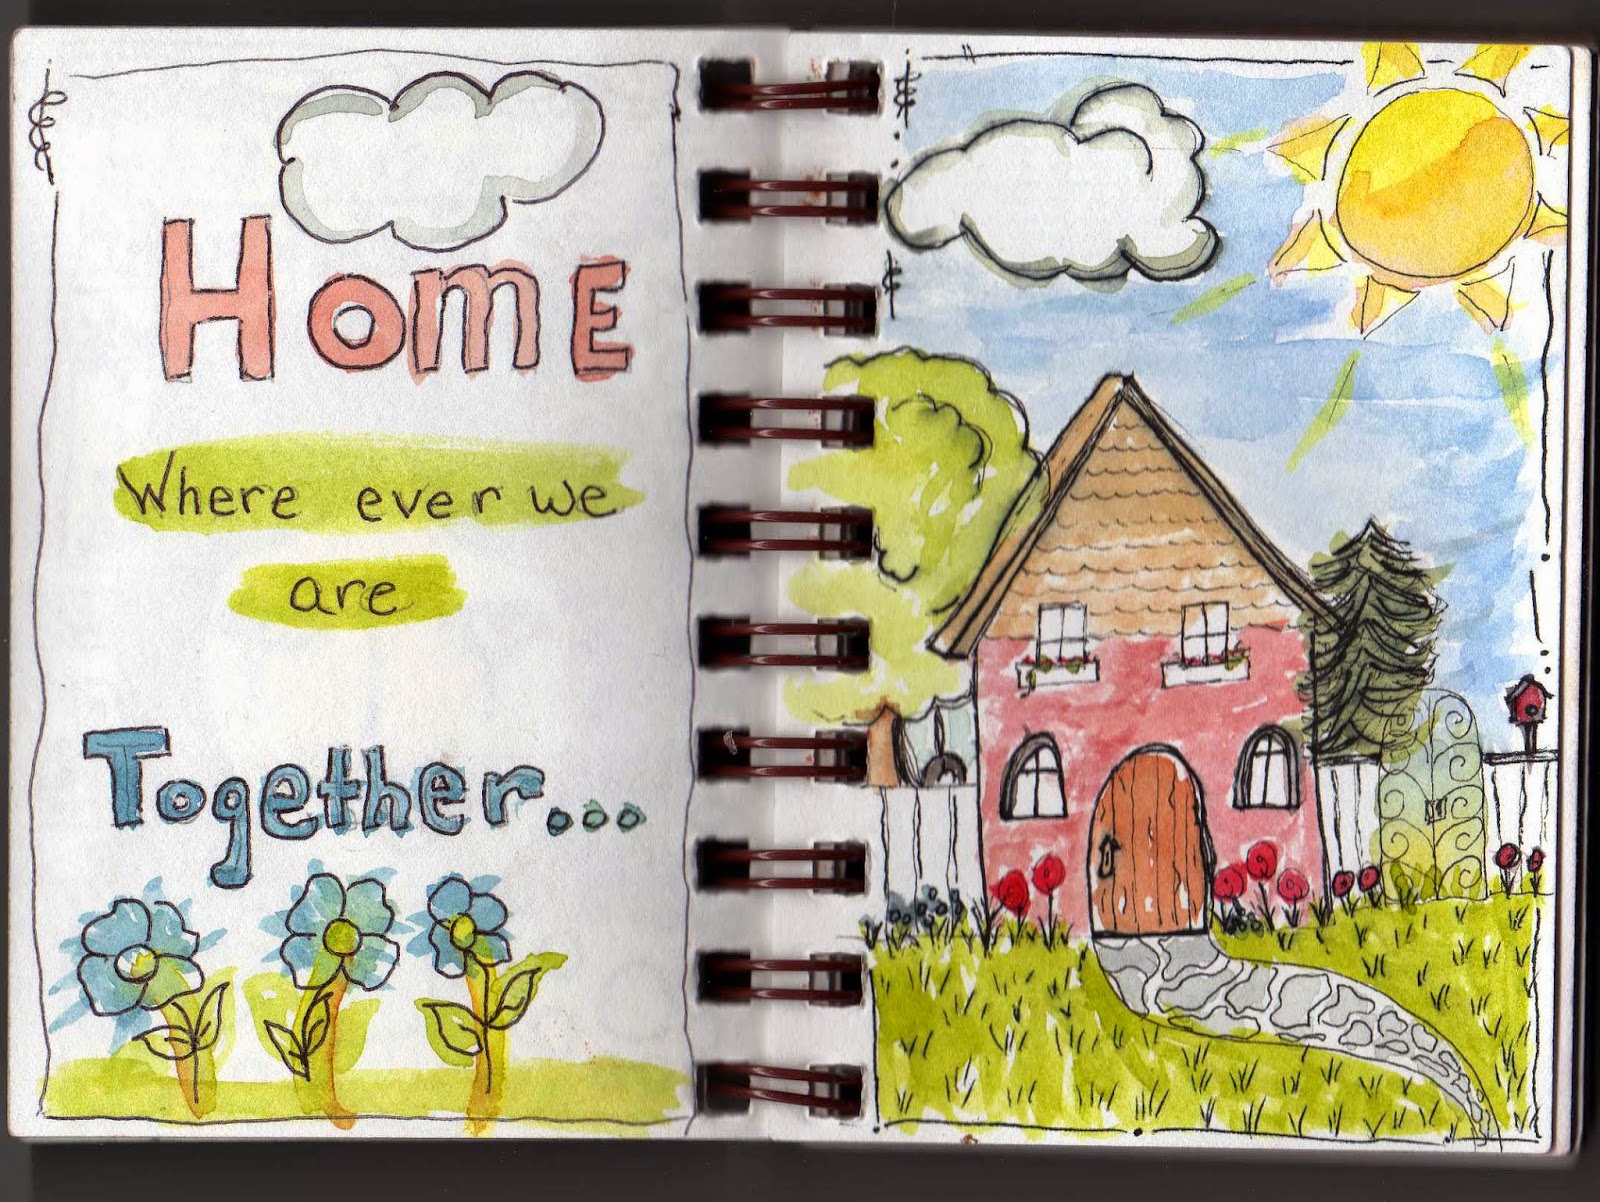 Home
Where ever we
are
Together...